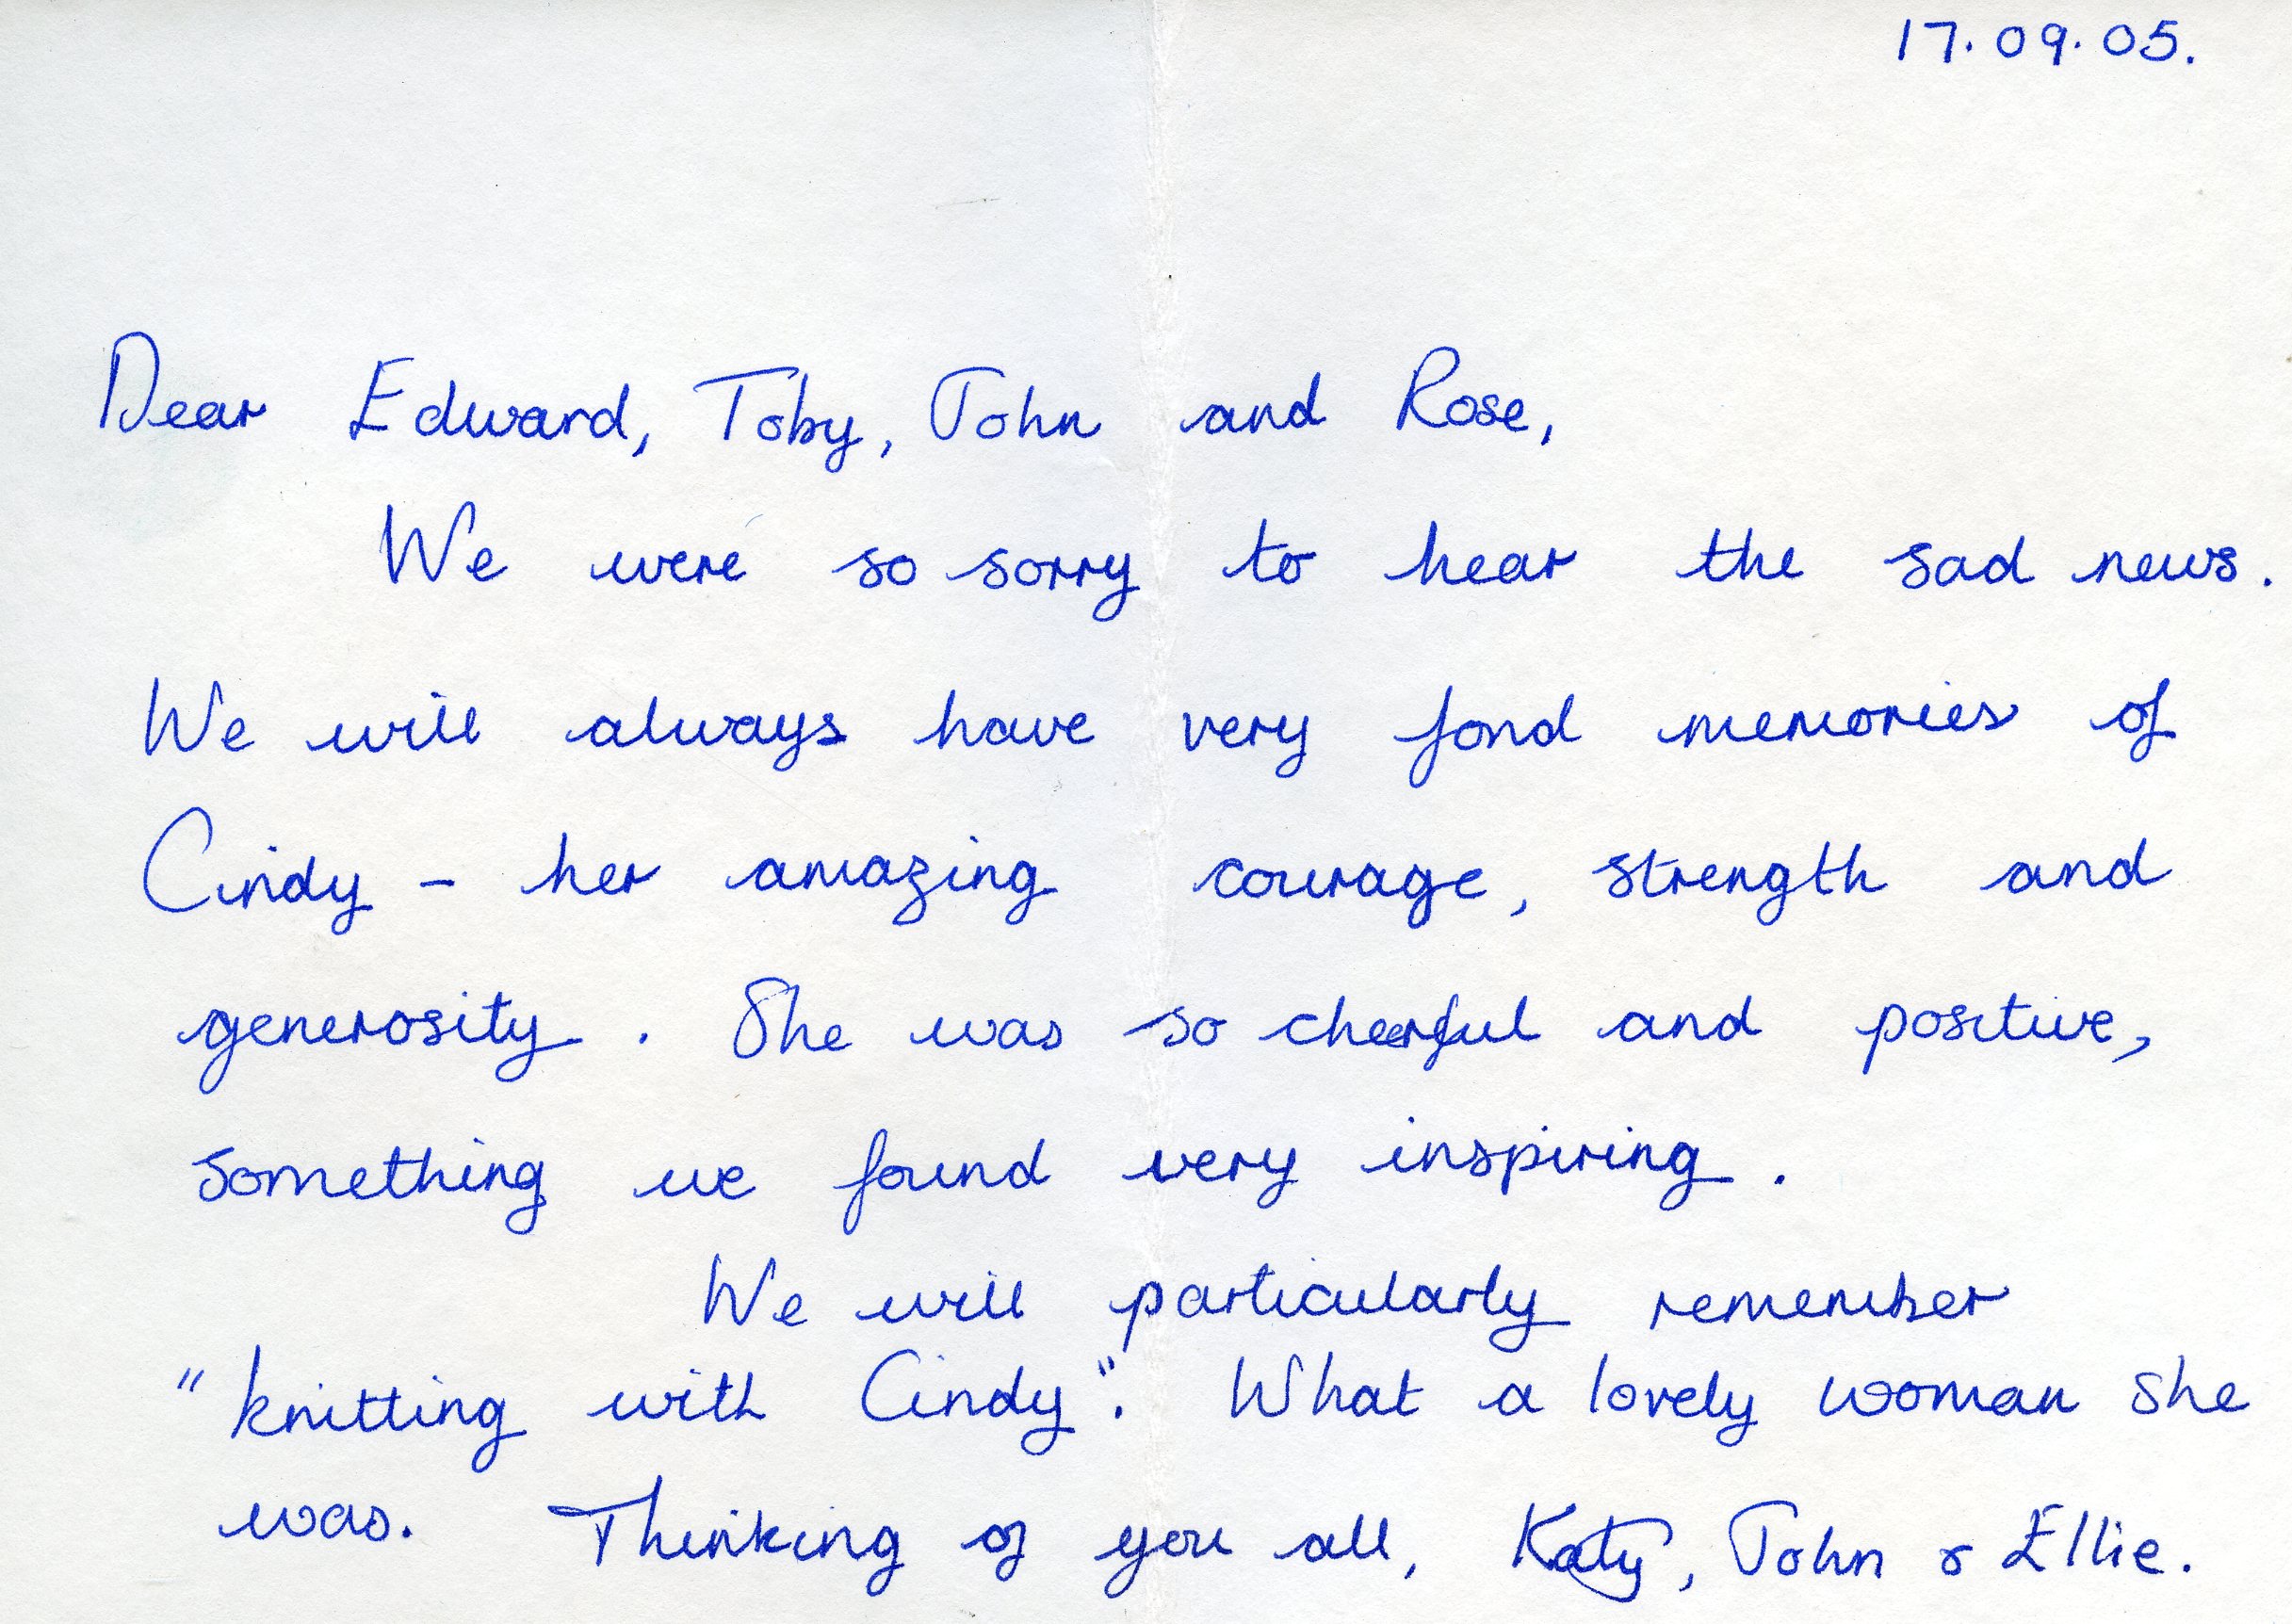 17.09.05.
Dear Edward, Toby, John and Rose,
We were so sorry to hear the sad news.
We will always have very fond memories of
Cindy - her amazing courage, strength and
generosity. She was so cheerful and positive,
something we found very inspiring.
We will particularly remember
"knitting with Cindy". What a lovely woman she
was. Thinking of you all, Katy, John & Ellie.